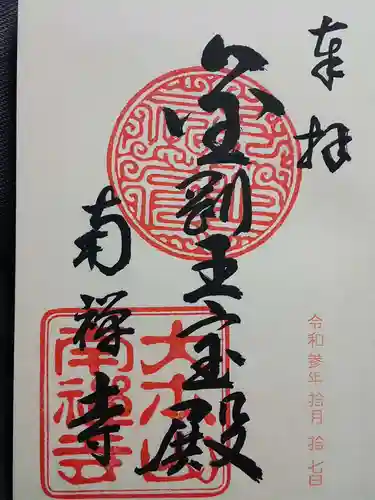 奉拝
金剛王宝殿
南禅寺
令和参年拾月拾七日
大本山
南禅寺